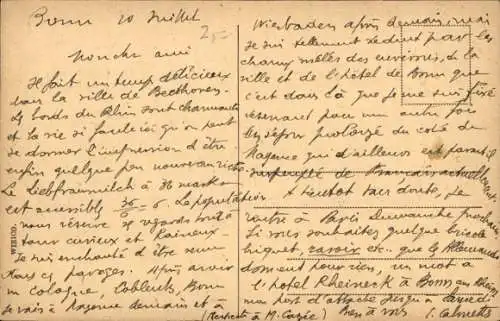 Bonn 20 Juillet
Mon cher ami
Il fait un temps délicieux
dans la ville de Beethoven.
Les bords du Rhin sont charmants
et la vie si facile ici qu'on peut
se donner l'impression d'être
enfin quelque peu nouveau riche
Le Liebfraumilch à 18 marks
est accessible 36/6 = 6. La population
nous réserve des regards tout à
tour curieux et haineux.
Je suis enchanté d'être venu
dans ces parages. Après avoir
vu Cologne, Coblentz, Bonn
je vais à Mayence demain et à
Wiesbaden après demain, mais
je suis tellement séduit par les
charmes mêlés des environs, de la
ville et de l'hôtel de Bonn que
c'est dans là que je me suis fixé
réservant pour une autre fois
un séjour prolongé du côté de
Mayence qui d'ailleurs est
de Français actuellement
A bientôt sans doute, je
rentre à Paris Dimanche prochain
Si vous souhaitez quelque
briquet, rasoir etc. que les Allemands
donnent pour rien, un mot à
l'hôtel Rheineck à Bonn am Rhein
mon port d'attache jusqu'à Samedi
Bien à vous
WEHCO.